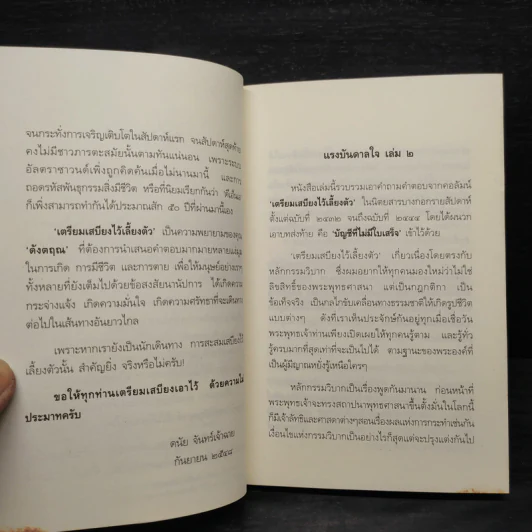 จนกระทั่งการเจริญเติบโตในสัปดาห์แรก จนสัปดาห์สุดท้าย
คงไม่มีชาวภารตะสมัยนั้นตามทันแน่นอน เพราะระบบ
อัลตราซาวนด์เพิ่งถูกคิดค้นเมื่อไม่นานมานี้ และการ
ถอดรหัสพันธุกรรมสิ่งมีชีวิต หรือที่นิยมเรียกกันว่า ดีเอ็นเอ
ก็เพิ่งสามารถทำกันได้ประมาณสัก ๕๐ ปีที่ผ่านมานี้เอง
'เตรียมเสบียงไว้เลี้ยงตัว' เป็นความพยายามของคุณ
'ดังตฤณ' ที่ต้องการนำเสนอคำตอบมากมายหลายแง่มุม
ในการเกิด การมีชีวิต และการตาย เพื่อให้มนุษย์อย่างเราๆ
ทั้งหลายที่ยังเต็มไปด้วยข้อสงสัยนานัปการ ได้เกิดความ
กระจ่างแจ้ง เกิดความมั่นใจ เกิดความศรัทธาที่จะเดินทาง
ต่อไปในเส้นทางอันยาวไกล
เพราะหากเรายังเป็นนักเดินทาง การสะสมเสบียงไว้
เลี้ยงตัวนั้น สำคัญยิ่ง จริงหรือไม่ครับ!
ขอให้ทุกท่านเตรียมเสบียงเอาไว้ ด้วยความไม่
ประมาทครับ
ดนัย จันทร์เจ้าฉาย
กันยายน ๒๕๔๘
แรงบันดาลใจ เล่ม ๒
หนังสือเล่มนี้รวบรวมเอาคำถามคำตอบจากคอลัมน์
'เตรียมเสบียงไว้เลี้ยงตัว' ในนิตยสารบางกอกรายสัปดาห์
ตั้งแต่ฉบับที่ จนถึงฉบับที่ โดยได้ผนวก
เอาบทส่งท้าย คือ 'บัญชีที่ไม่มีใบเสร็จ' เข้าไว้ด้วย
'เตรียมเสบียงไว้เลี้ยงตัว' เกี่ยวเนื่องโดยตรงกับ
หลักกรรมวิบาก ซึ่งผมอยากให้ทุกคนมองใหม่ว่าไม่ใช่
ลิขสิทธิ์ของพระพุทธศาสนา แต่เป็นกฎกติกา เป็น
ข้อเท็จจริง เป็นกลไกขับเคลื่อนทางธรรมชาติให้เกิดรูปชีวิต
แบบต่างๆ ดังที่เราเห็นประจักษ์กันอยู่ทุกเมื่อเชื่อวัน
พระพุทธเจ้าท่านเพียงเปิดเผยให้ทุกคนรู้ตาม และรู้ทั่ว
รู้ครบมากที่สุดเท่าที่จะเป็นไปได้ ตามฐานะของพระองค์ที่
เป็นผู้มีญาณหยั่งรู้เหนือใครๆ
หลักกรรมวิบากเป็นเรื่องพูดกันมานาน ก่อนหน้าที่
พระพุทธเจ้าจะทรงสถาปนาพุทธศาสนาขึ้นตั้งมั่นในโลกนี้
ก็มีเจ้าลัทธิและศาสดาต่างๆสอนเรื่องผลแห่งการกระทำเช่นกัน
เงื่อนไขแห่งกรรมวิบากเป็นอย่างไรก็สุดแต่จะปรุงแต่งกันไป